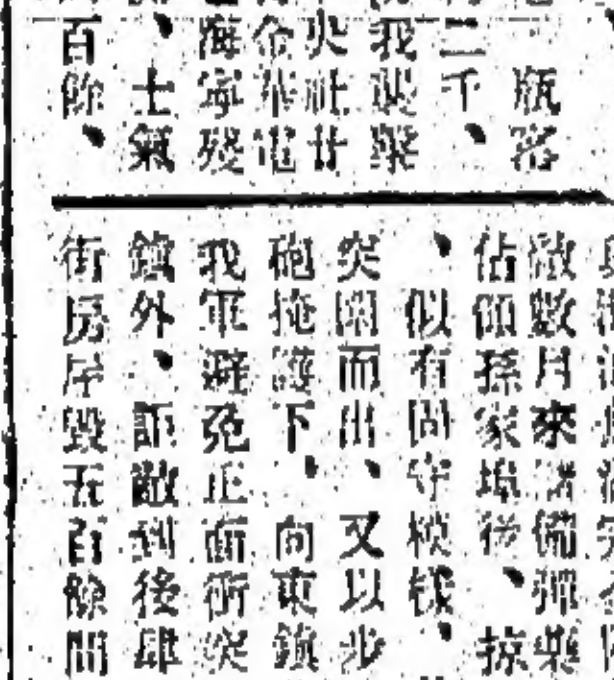 瓶窑
二千、
我襲擊
央社廿
金華電
海寧殘
、士氣
百餘、
敵數月來諸備彈藥
佔領孫家埠後、掠
、似有固守模樣、
突圍而出、又以步
砲掩護下、向東鎮
我軍避免正面衝突
鎮外、詎敵到後肆
街房屋毀五百餘間